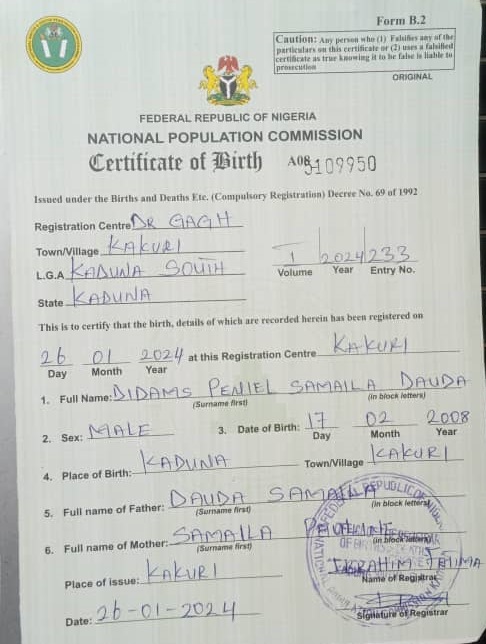 Form B.2
Caution: Any person who (1) Falsifies any of the
particulars on this certificate or (2) uses a falsified
certificate as true knowing it to be false is liable to
prosecution
ORIGINAL
FEDERAL REPUBLIC OF NIGERIA
NATIONAL POPULATION COMMISSION
Certificate of Birth A085109950
Issued under the Births and Deaths Etc. (Compulsory Registration) Decree No. 69 of 1992
Registration Centre DR GAGH
Town/Village KAKURI
L.G.A KADUNA SOUTH
1 2024 233
Volume Year Entry No.
State KADUNA
This is to certify that the birth, details of which are recorded herein has been registered on
26 01 2024 at this Registration Centre KAKURI
Day Month Year
1. Full Name: DIDAMS PENIEL SAMAILA DAUDA
(Surname first) (in block letters)
2. Sex: MALE 3. Date of Birth: 17 02 2008
Day Month Year
4. Place of Birth: KADUNA Town/Village KAKURI
5. Full name of Father: DAUDA SAMAILA
(Surname first) (in block letters)
6. Full name of Mother: SAMAILA
(Surname first) (in block letters)
Place of issue: KAKURI
Name of Registrar
Date: 26-01-2024
Signature of Registrar